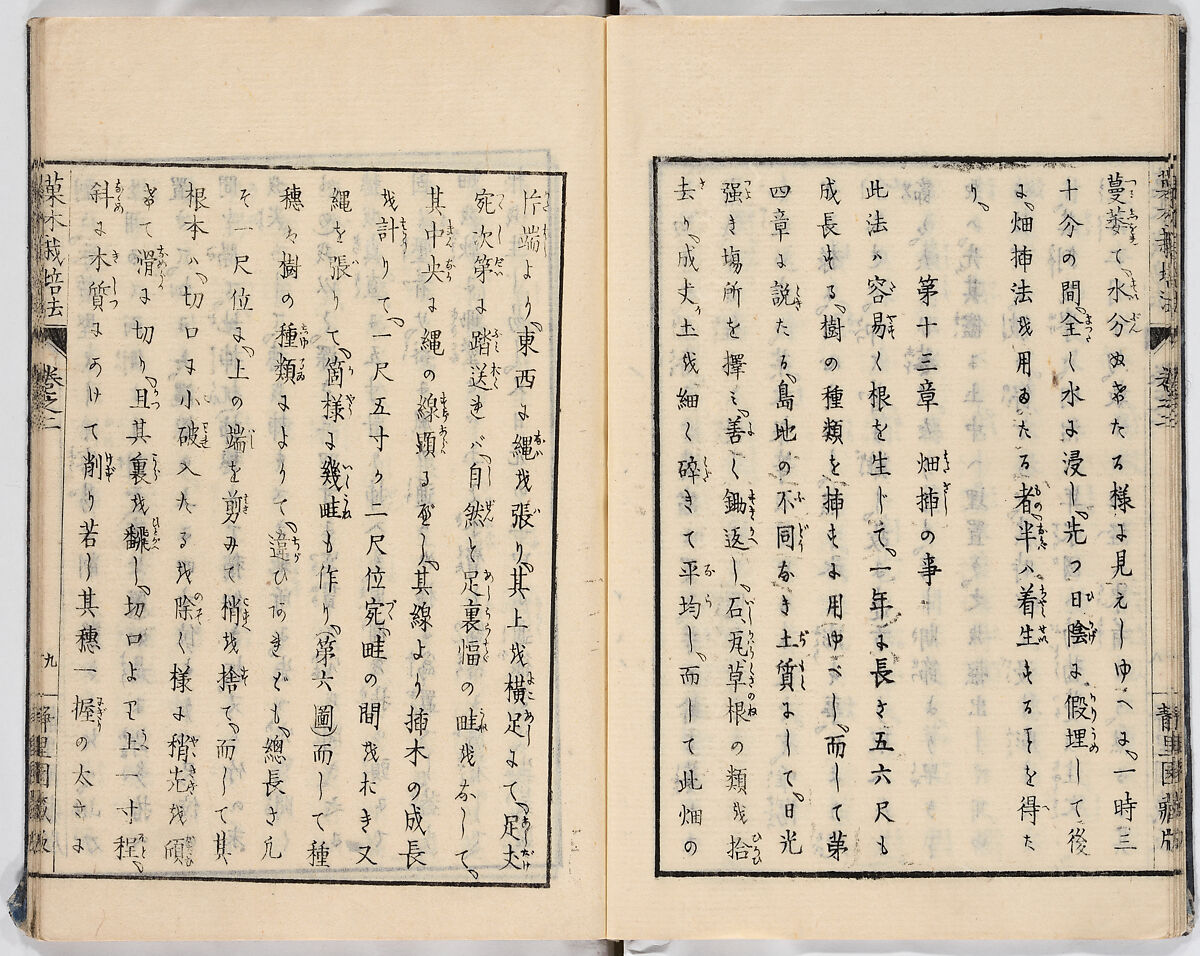 菓木栽培法 卷之二 静里園藏版
蔓萎て水分ぬけたる様に見えしゆへに、一時三
十分の間、全く水に浸し、先つ日陰に假埋して後
に、畑挿法を用ゐたる者、半ハ着生することを得た
り、
第十三章 畑挿の事
此法ハ容易く根を生じて、一年に長さ五六尺も
成長する、樹の種類を挿すに用ゆべし、而して第
四章に説たる、島地の不同なき土質にして、日光
强き塲所を擇ミ、善く鋤返し、石瓦草根の類を拾
去り、成丈土を細く碎きて平均し、而して此畑の
片端より、東西に縄を張り、其上を横足にて、足丈
宛次第に踏送れバ、自然と足裏幅の畦をなして、
其中央に縄の線顕るべし、其線より挿木の成長
を計りて、一尺五寸か二尺位宛、畦の間をおき又
縄を張りて、箇様に幾畦も作り、第六圖而して種
穂は樹の種類によりて、違ひあれども、總長さ凡
そ一尺位に、上の端を剪みて梢を捨て、而して其
根本ハ、切口に小破入たるを除く様に稍先を傾
けて滑に切り、且其裏を飜し、切口より上一寸程、
斜に木質にかけて削り若し其穂一握の太さに
菓木栽培法 卷之二 九 静里園藏版